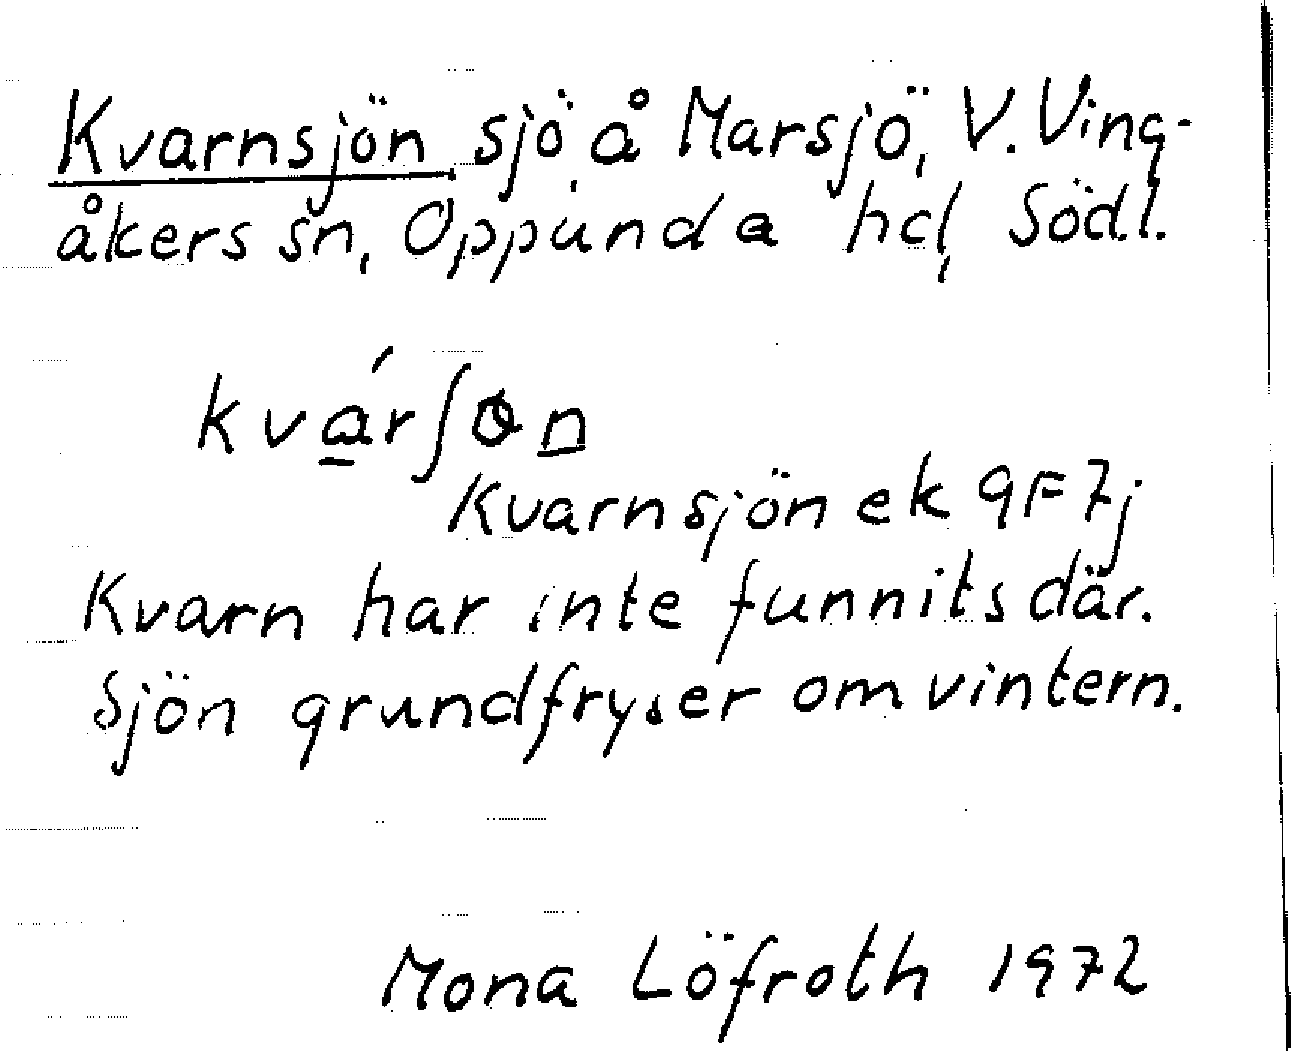 Kvarnsjön, sjö å Marsjö, V. Ving-
åkers sn, Oppunda hd, Södl.
kvárʃɵn
Kvarnsjön ek 9F7j
Kvarn har inte funnits där.
Sjön grundfryser om vintern.
Mona Löfroth 1972